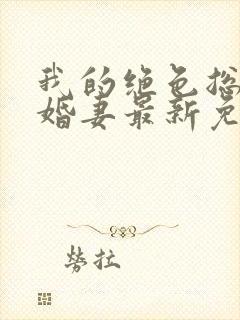 我的绝色总
婚妻最新免
劳拉